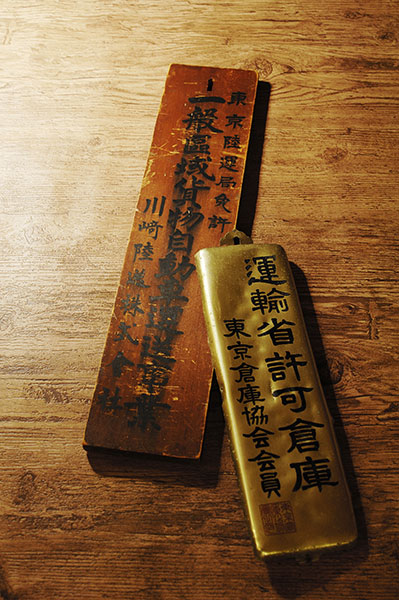 東京陸運局免許
一般區域貨物自動車運送事業
川﨑陸送株式会社
運輸省許可倉庫
東京倉庫協会会員